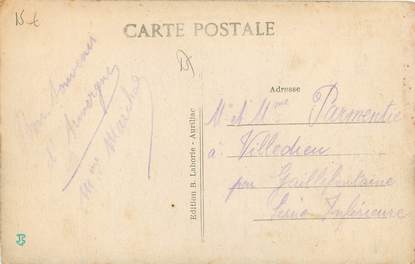 15 €
CARTE POSTALE
Bon Souvenir
d'Auvergne
Mme
Edition B. Laborie - Aurillac
Adresse
Mr et Mme Parmentie
à Villedieu
par Gaillefontaine
Seine Inférieure